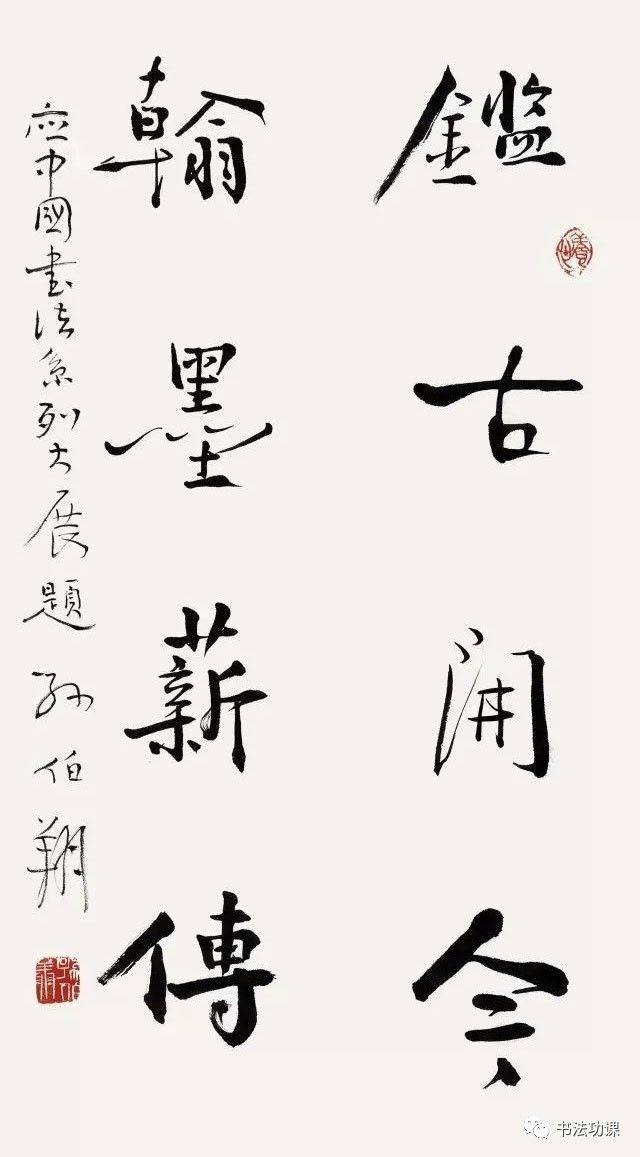 鑑古開今
翰墨薪傳
應中國書法系列大展題 孫伯翔
书法功课